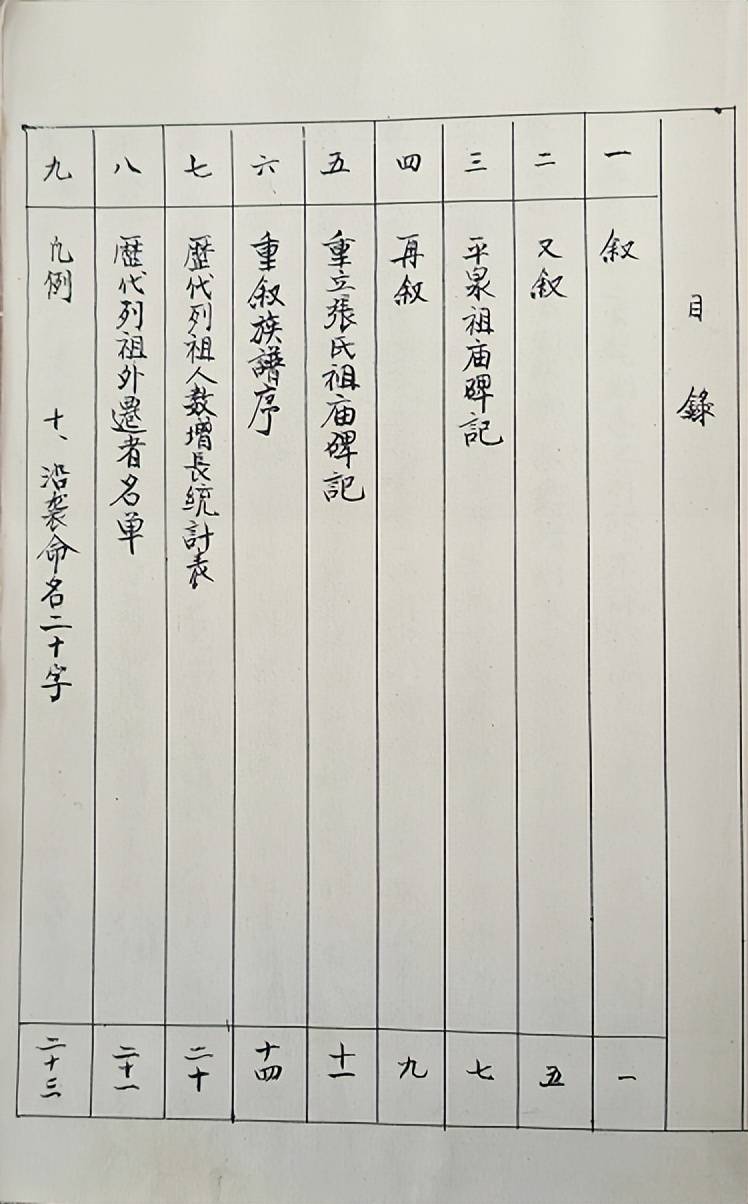 目錄
一 叙 一
二 又叙 五
三 平泉祖庙碑記 七
四 再叙 九
五 重立張氏祖庙碑記 十一
六 重叙族譜序 十四
七 歷代列祖人数增長統計表 二十
八 歷代列祖外遷者名单 二十一
九 凡例 十、沿袭命名二十字 二十三